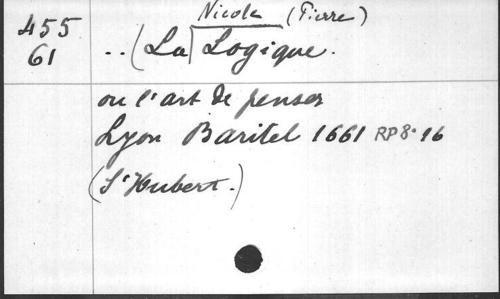 Nicole (Pierre)
455
61
..(La Logique.
ou l'art de penser
Lyon Baritel 1661 RP8.16
(St Hubert.)